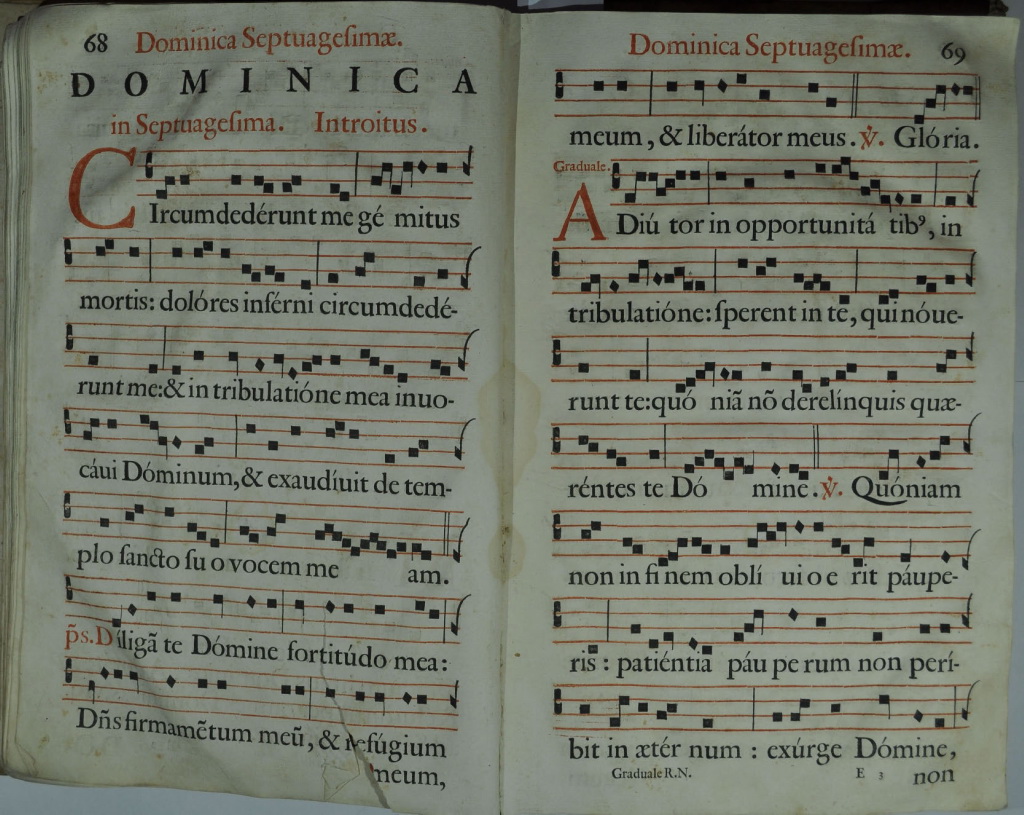 68 Dominica Septuagesimæ.
DOMINICA
in Septuagesima. Introitus.
CIrcumdedérunt me gé mitus
mortis: dolóres inférni circumdedé-
runt me: & in tribulatióne mea inuo-
cáui Dóminum, & exaudíuit de tem-
plo sancto su o vocem me am.
p̃s. Díligã te Dómine fortitúdo mea:
Dñs firmamẽtum meũ, & refúgium
meum,
Dominica Septuagesimæ. 69
meum, & liberátor meus. ℣. Glória.
Graduale.
ADiú tor in opportunitá tibꝰ, in
tribulatióne: sperent in te, qui nóue-
runt te: quó niã nõ derelínquis quæ-
réntes te Dó mine. ℣. Quóniam
non in finem oblí ui o e rit páupe-
ris: patiéntia páu pe rum non perí-
bit in ætér num: exúrge Dómine,
Graduale R.N. E 3 non